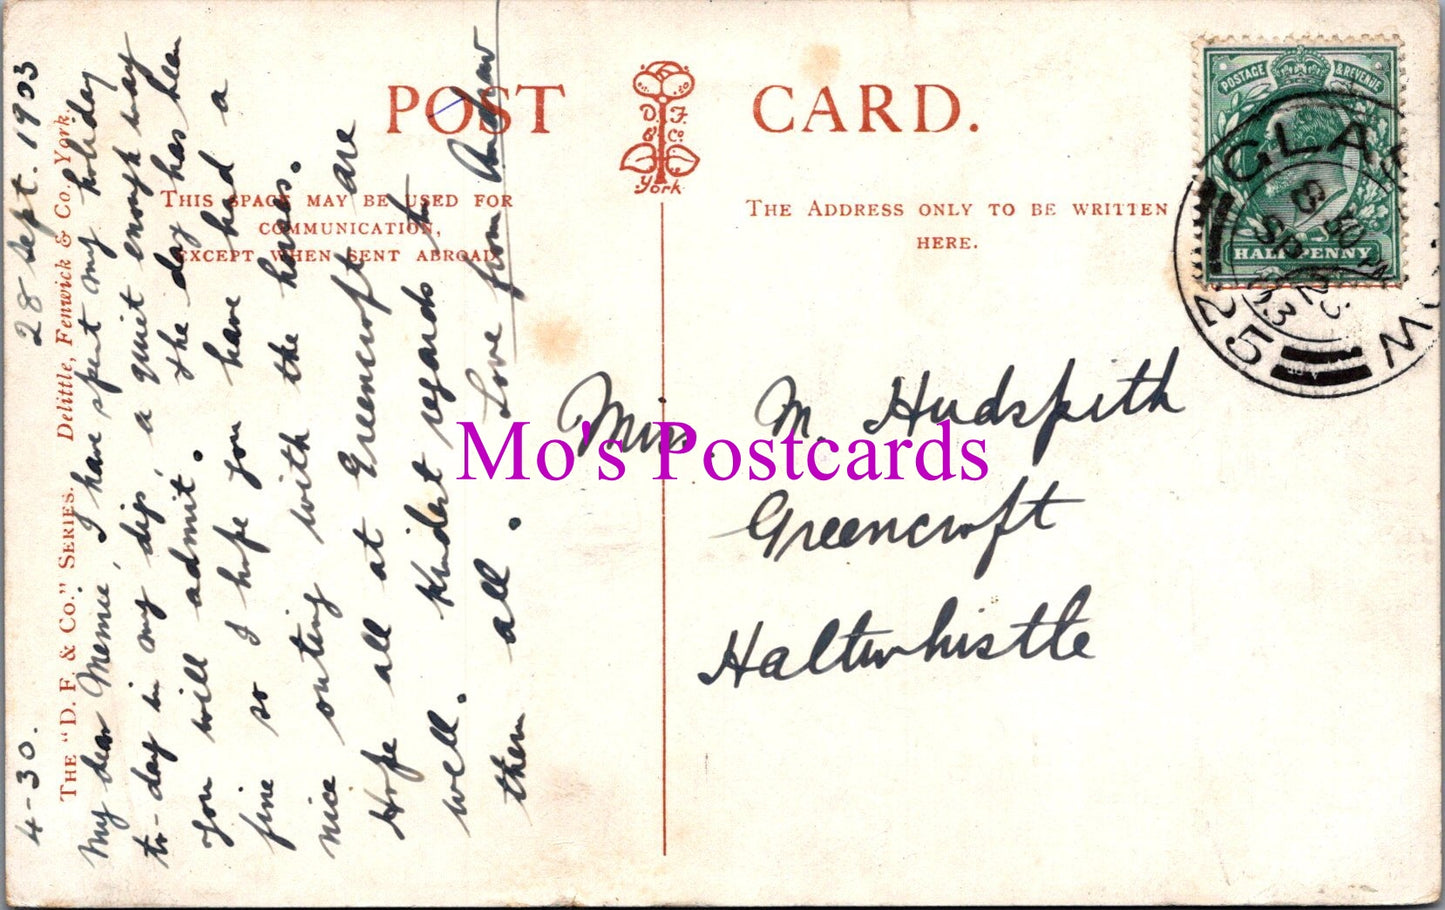 POST CARD.
D. F. & Co.
York
THIS SPACE MAY BE USED FOR
COMMUNICATION,
EXCEPT WHEN SENT ABROAD
THE ADDRESS ONLY TO BE WRITTEN
HERE.
POSTAGE & REVENUE
HALFPENNY
GLASGOW
8 30 PM
SP 28
03
25
THE "D. F. & Co." SERIES. Delittle, Fenwick & Co. York.
4-30. 28 Sept. 1903
My dear Memie, I have spent my holiday
to-day in my digs, a quiet enough way
you will admit. The day has been
fine so I hope you have had a
nice outing with the horses.
Hope all at Greencroft are
well. Kindest regards to
them all. Love from Andrew
Miss M. Hudspith
Greencroft
Haltwhistle
Mo's Postcards